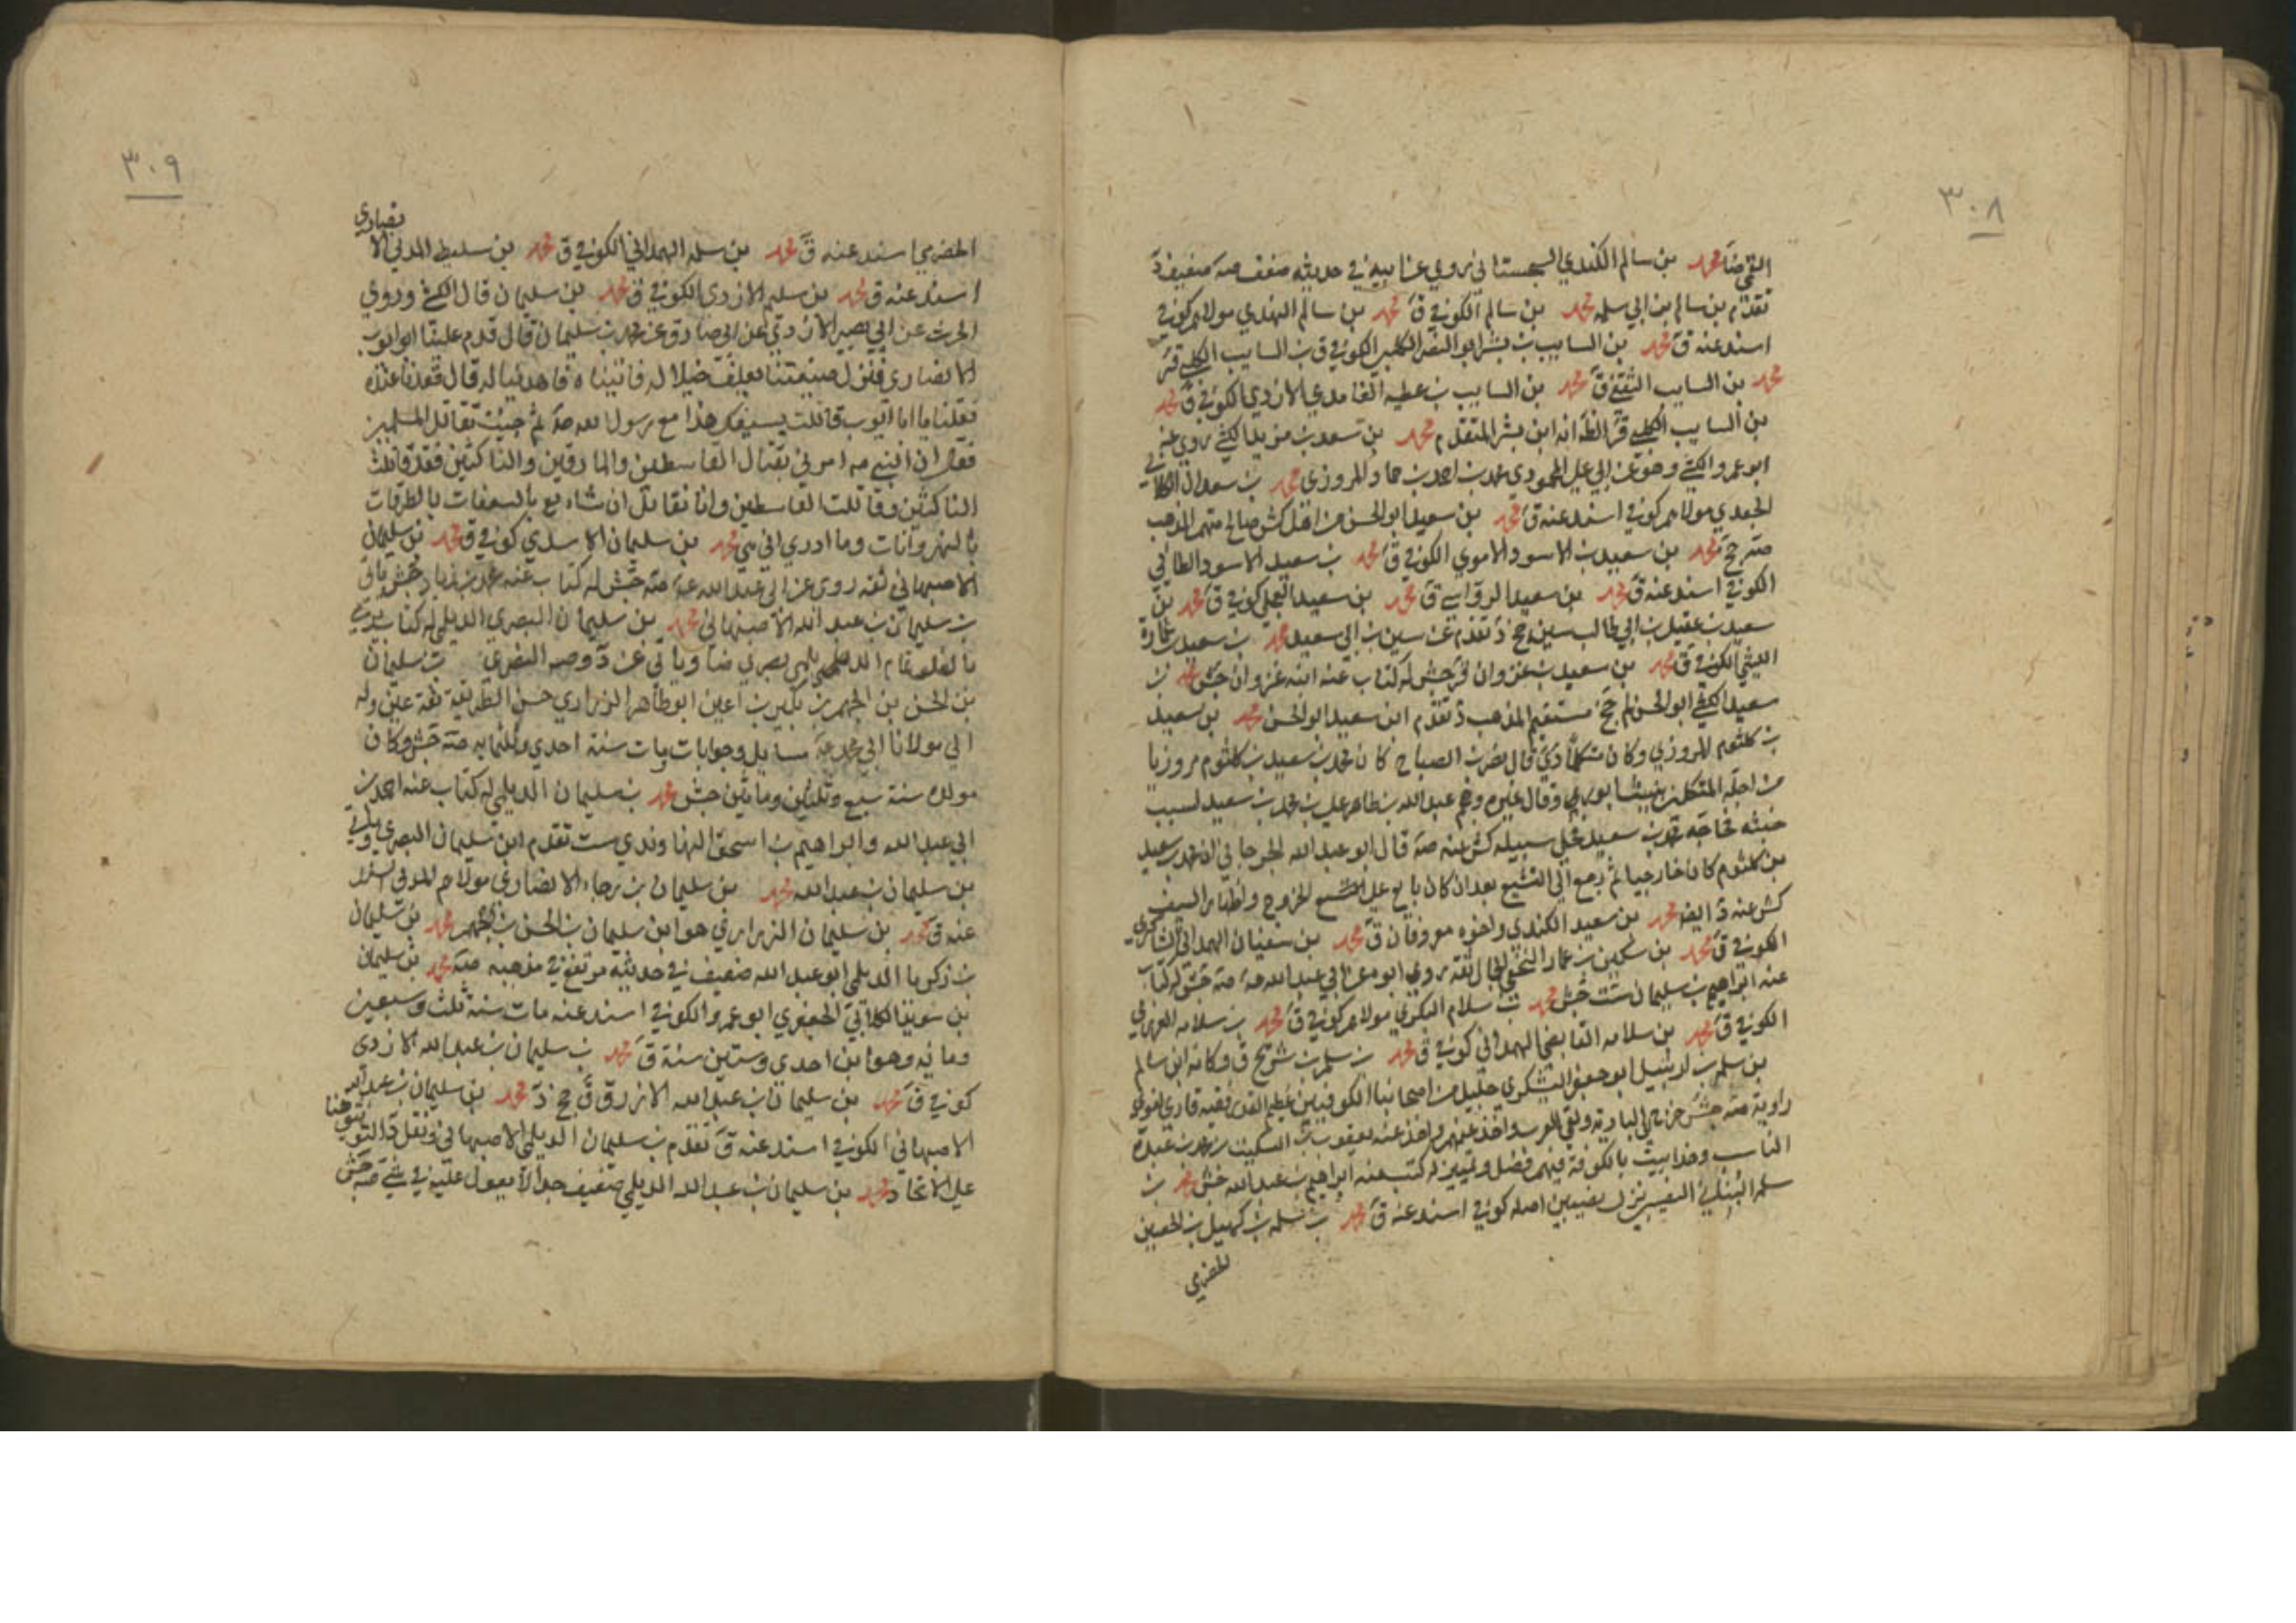 ٣٠٨
محمد بن سالم الكندي السجستاني روي عن ابيه في حديثه ضعف صه ضعيف د
تقدم بن سالم بن ابي سلمه محمد بن سالم الكوفي ق محمد بن سالم النهدي مولاهم كوفي
اسند عنه ق محمد بن السايب بن بشر ابو النضر الكلبي الكوفي ق بن السايب الكلبي قر
محمد بن السايب الثقفي ق محمد بن السايب بن عطيه الغامدي الازدي الكوفي ق محمد
بن السايب الكلبي قر الظ انه ابن بشر المتقدم محمد بن سعد بن مزيد الكشي روي عنه
ابو عمرو الكشي وهو عن ابي علي المحمودي محمد بن احمد بن حماد المروزي محمد بن سعدان
الجعدي مولاهم كوفي اسند عنه ق محمد بن سعيد ابو الحسن من اهل كش صالح مستقيم المذهب
محمد بن سعيد بن الاسود الاموي الكوفي ق محمد بن سعيد الاسود الطائي
الكوفي اسند عنه ق محمد بن سعيد الرواسي ق محمد بن سعيد البجلي كوفي ق محمد بن
سعيد بن عقيل بن ابي طالب سين جخ د تقدم عن سين بن ابي سعيد محمد بن سعيد
الليثي الكوفي ق محمد بن سعيد بن غزوان قر جش له كتاب عنه ابنه غزوان جش محمد بن
سعيد الكشي ابو الحسن لم جخ مستقيم المذهب د تقدم ابن سعيد ابو الحسن محمد بن سعيد
بن كلثوم المروزي وكان متكلما دي قال نصر بن الصباح كان محمد بن سعيد بن كلثوم مروزيا
من اجله المتكلمين بنيشابور وقال غيره وهجم عبد الله بن طاهر علي بن محمد بن سعيد لسبب
خبثه فحاجه محمد بن سعيد فخلي سبيله كش عنه صه قال ابو عبد الله الجرجاني ان محمد بن سعيد
بن كلثوم كان خارجيا ثم رجع الي التشيع بعد ان كان بايع علي الخروج واظهار السيف
كش عنه د ايضا محمد بن سعيد الكندي واخوه معروفان ق محمد بن سفيان الهمداني
الكوفي ق محمد بن سكين بن عمار النخعي الجمال ثقه روي ابوه عن ابي عبد الله عه صه جش له كتاب
عنه ابراهيم بن سليمان ست جش محمد بن سلام البكري مولاهم كوفي ق محمد بن سلامه
الكوفي ق محمد بن سلامه القابضي الهمداني كوفي ق محمد بن سلم بن شريح ق وكانه ابن سالم
بن سلمه بن ارتبيل ابو جعفر اليشكري جليل من اصحابنا الكوفيين عظيم القدر فقيه قاري لغوي
راويه صه جش خرج الي الباديه ولقي العرب واخذ عنهم واخذ عنه يعقوب بن السكيت ومحمد بن عبده
الناسب وهذا بيت بالكوفة فيهم فضل وتمييز له كتب عنه ابراهيم بن عبد الله جش محمد بن
سلمه البناني البصير نزل نصيبين اصله كوفي اسند عنه ق محمد بن سلمه بن كهيل بن الحصين
الحضرمي
٣٠٩
الحضرمي اسند عنه ق محمد بن سلمه الهمداني الكوفي ق محمد بن سليط المدني الانصاري
اسند عنه ق محمد بن سليم الازدي الكوفي ق محمد بن سليمان قال الكشي وروي
الحرث عن ابي بصير الازدي عن ابي صادق عن محمد بن سليمان قال قدم علينا ابو ايوب
الانصاري فنزل ضيعتنا يعلف خيلا له فاتيناه فاهدينا له قال فقعدنا عنده
فقلنا يا ابا ايوب قاتلت بسيفك هذا مع رسول الله صه ثم جيت تقاتل المسلمين
فقال ان النبي صه امرني بقتال القاسطين والمارقين والناكثين فقد قاتلت
الناكثين وقاتلت القاسطين وانا نقاتل ان شاء الله بالسعفات بالطرقات
بالنهروانات وما ادري اني هي محمد بن سليمان الاسدي كوفي ق محمد بن سليمان
الاصبهاني ثقه روي عن ابي عبد الله عه صه جش له كتاب عنه محمد بن زياد جش ياتي
بن سليمان بن عبد الله الاصبهاني محمد بن سليمان البصري الديلمي له كتاب يرمي
بالغلو ظم الديلمي بصري ضا وياتي عن د وصه النصري بن سليمان
بن الحسن بن الجهم بن بكير بن اعين ابو طاهر الزراري حسن الطريقه ثقة عين وله
الي مولانا ابي محمد عه مسايل وجوابات مات سنة احدي وثلثمايه صه جش وكان
مولده سنة سبع وثلثين ومائتين جش محمد بن سليمان الديلمي له كتاب عنه احمد بن
ابي عبد الله وابراهيم بن اسحق النهاوندي ست تقدم ابن سليمان البصري وياتي
بن سليمان بن عبد الله محمد بن سليمان بن رجاء الانصاري مولاهم المدني اسند
عنه ق محمد بن سليمان الزراري هو ابن سليمان بن الحسن بن الجهم محمد بن سليمان
بن زكريا الديلمي ابو عبد الله ضعيف في حديثه مرتفع في مذهبه صه محمد بن سليمان
بن سويد الكلابي الجعفري ابو عمرو الكوفي اسند عنه مات سنة ثلث وسبعين
ومايه وهو ابن احدي وستين سنة ق محمد بن سليمان بن عبد الله الازدي
كوفي ق محمد بن سليمان بن عبد الله الازرق ق جخ د محمد بن سليمان بن عبد الله
الاصبهاني الكوفي اسند عنه ق تقدم بن سليمان الديلمي الاصبهاني ونقل د التوثيق هنا
علي الاتحاد محمد بن سليمان بن عبد الله الديلمي ضعيف جدا لا يعول عليه في شي صه جش